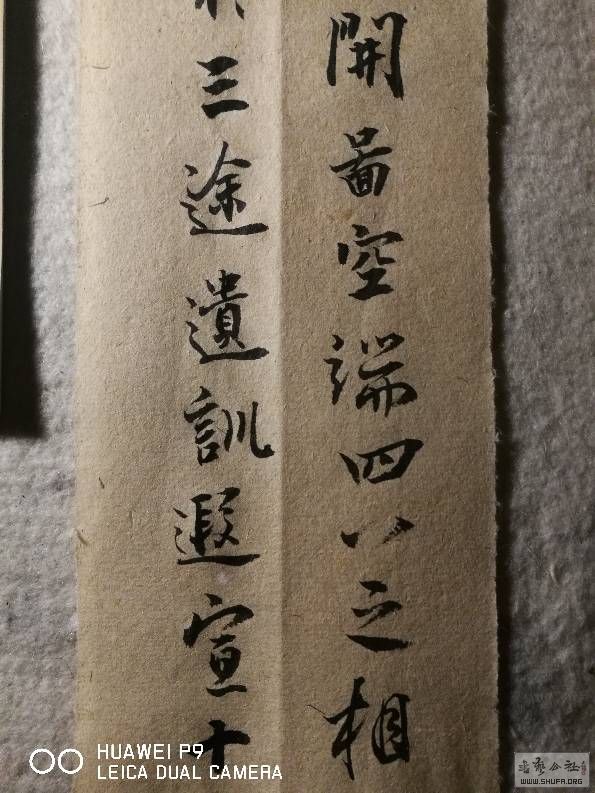 開啚空端四八之相
三途遺訓遐宣
HUAWEI P9
LEICA DUAL CAMERA
书艺公社
WWW.SHUFA.ORG